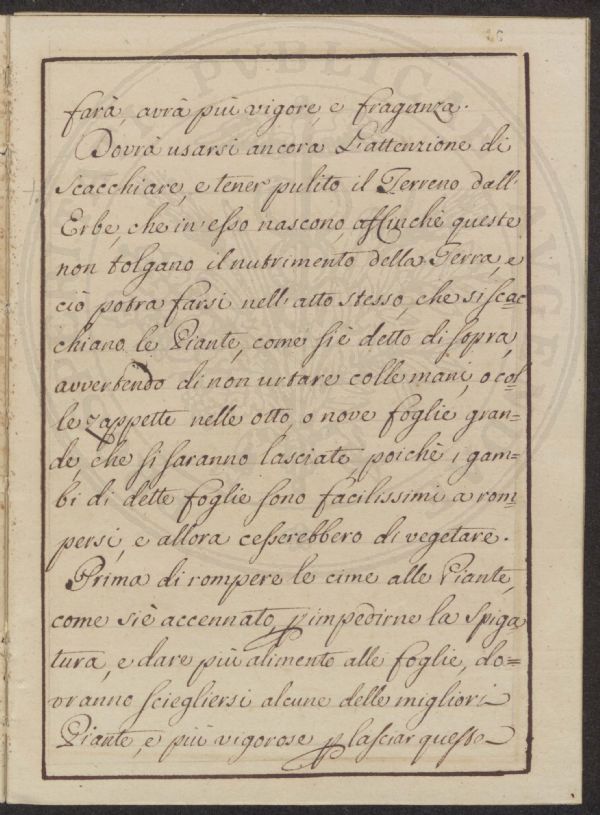 6
farà, avrà più vigore, e fraganza.
Dovrà usarsi ancora l'attenzione di
scacchiare, e tener pulito il Terreno dall'
Erbe, che in esso nascono, affinchè queste
non tolgano il nutrimento della Terra, e
ciò potrà farsi nell'atto stesso, che si scac
chiano le Piante, come si è detto di sopra,
avvertendo di non urtare colle mani, o col
le zappette nelle otto, o nove foglie gran=
de, che si saranno lasciate, poichè i gam=
bi di dette foglie sono facilissimi a rom
persi, e allora cesserebbero di vegetare.
Prima di rompere le cime alle Piante,
come si è accennato, p impedirne la spiga
tura, e dare più alimento alle foglie, do=
vranno sciegliersi alcune delle migliori
Piante, e più vigorose p lasciar queste
PVBLICAE